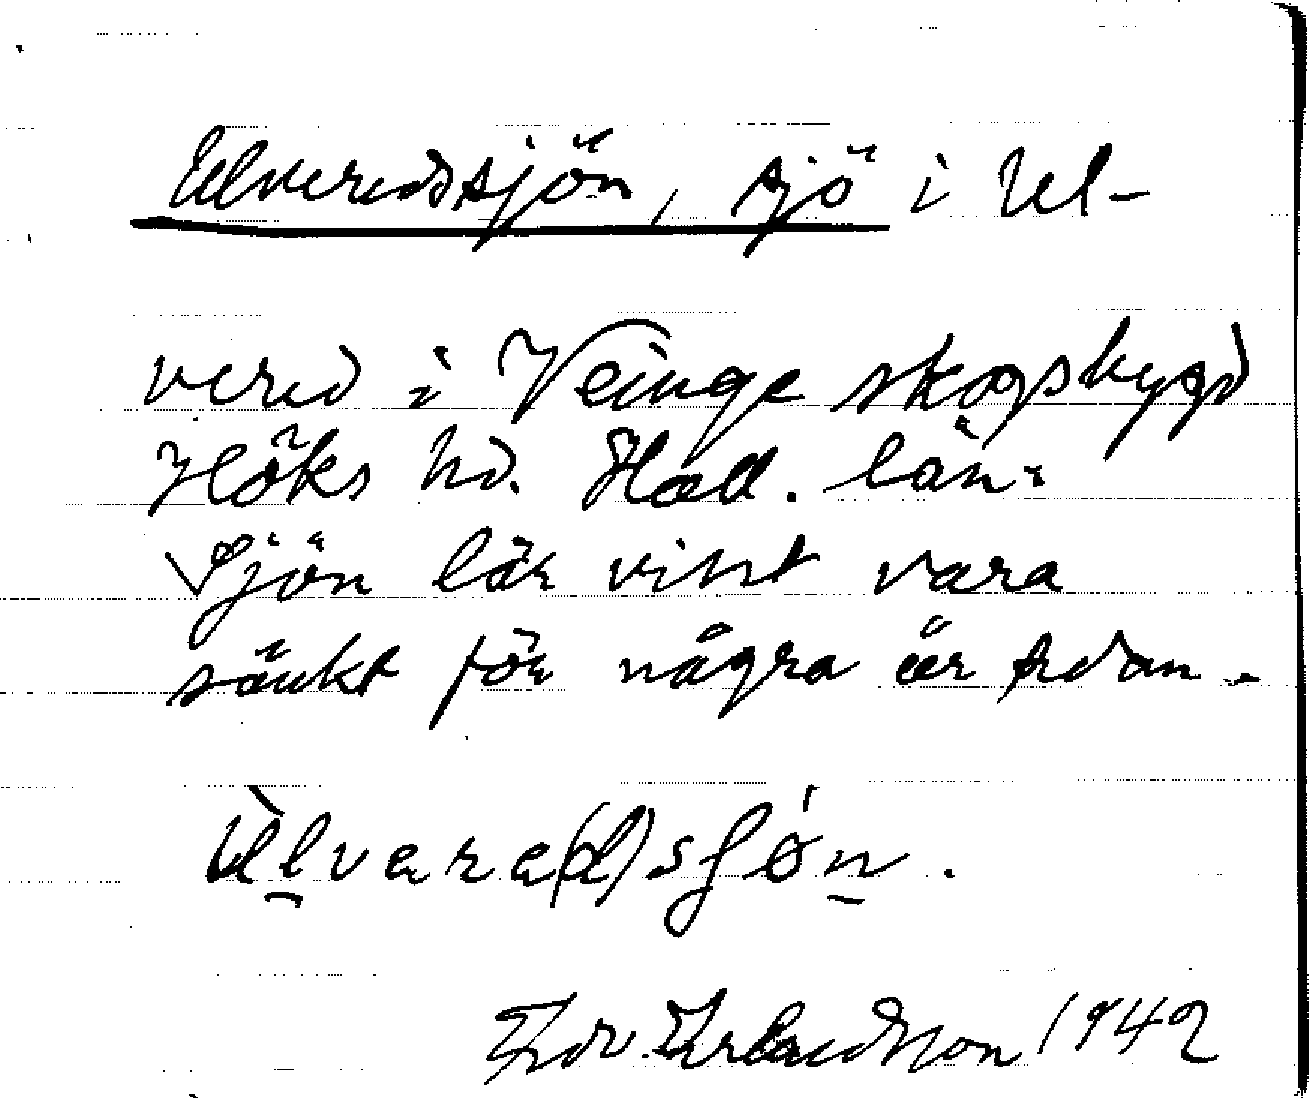 Ulveredssjön, sjö i Ul-
vered i Veinge skogsbygd
Höks hd. Hall. län.
Sjön lär visst vara
sänkt för några år sedan.
Ulvara(d)sjön.
Edv. Erlandsson 1942